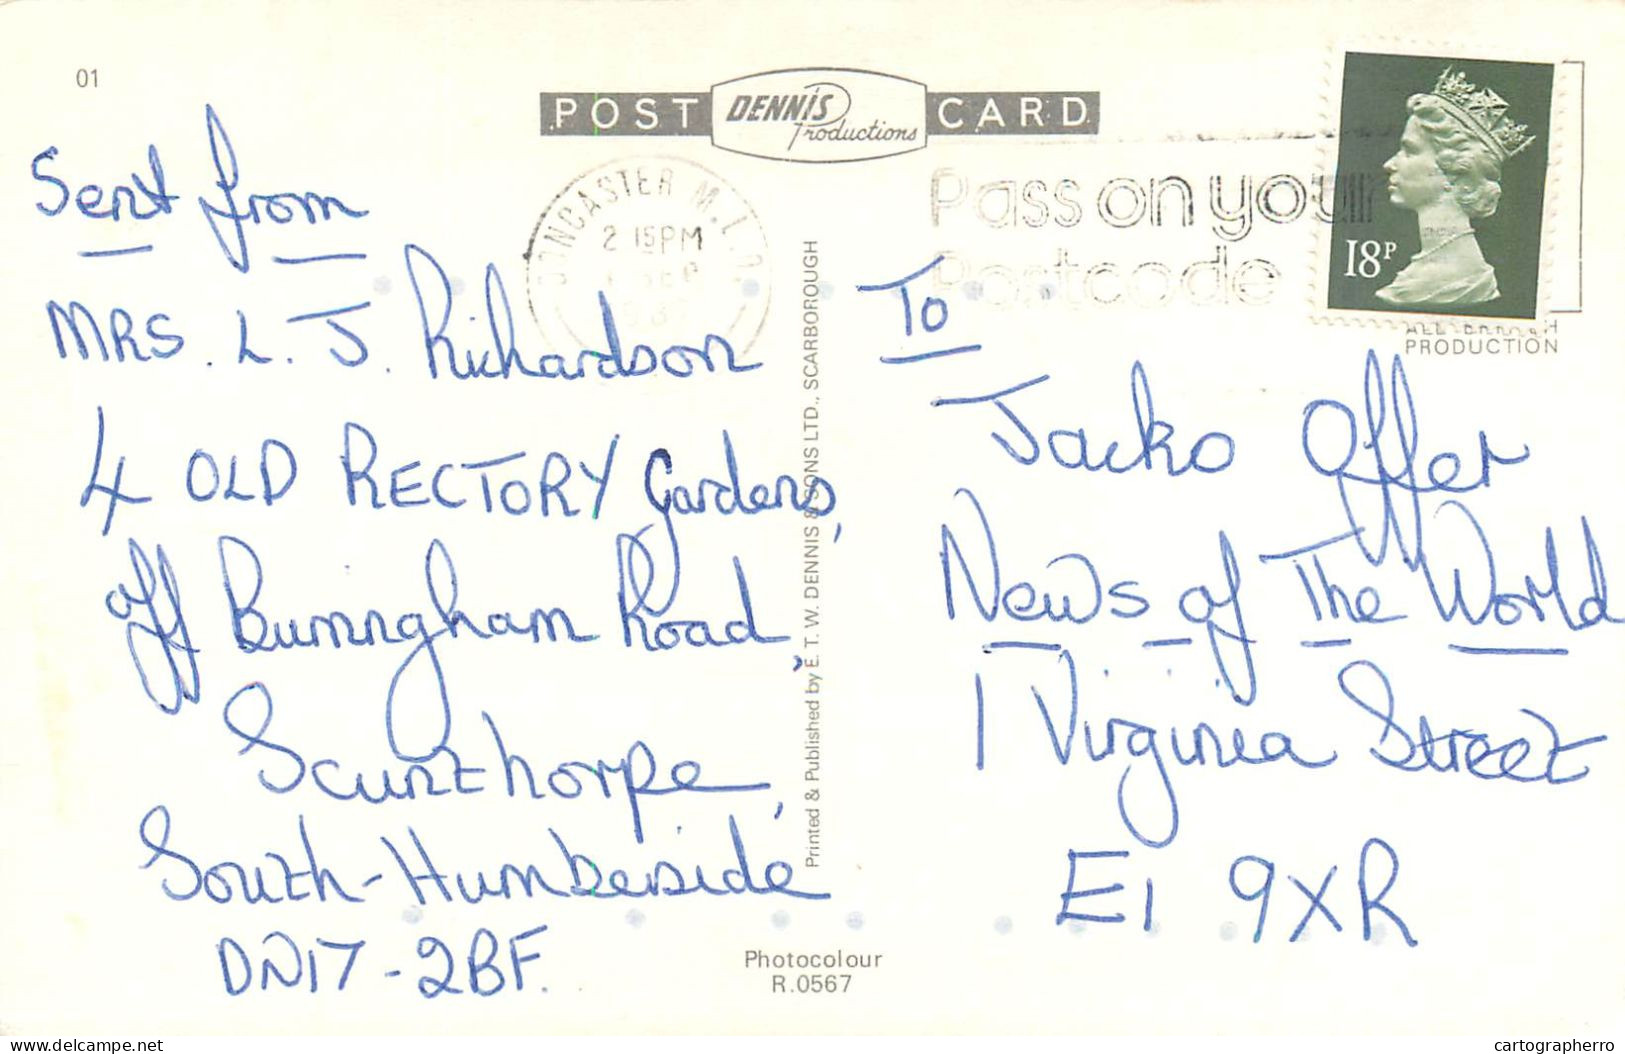 01
POST DENNIS Productions CARD
Sent from
MRS. L. J. Richardson
4 OLD RECTORY Gardens,
off Burringham Road,
Scunthorpe,
South-Humberside
DN17-2BF.
DONCASTER M.L.O.
2 15PM
Pass on your
Postcode
18P
ALL BRITISH
PRODUCTION
To
Jacko Offer
News of The World
1 Virginia Street
E1 9XR
Printed & Published by E. T. W. DENNIS & SONS LTD., SCARBOROUGH
Photocolour
R.0567
Delcampe.net
cartographerro